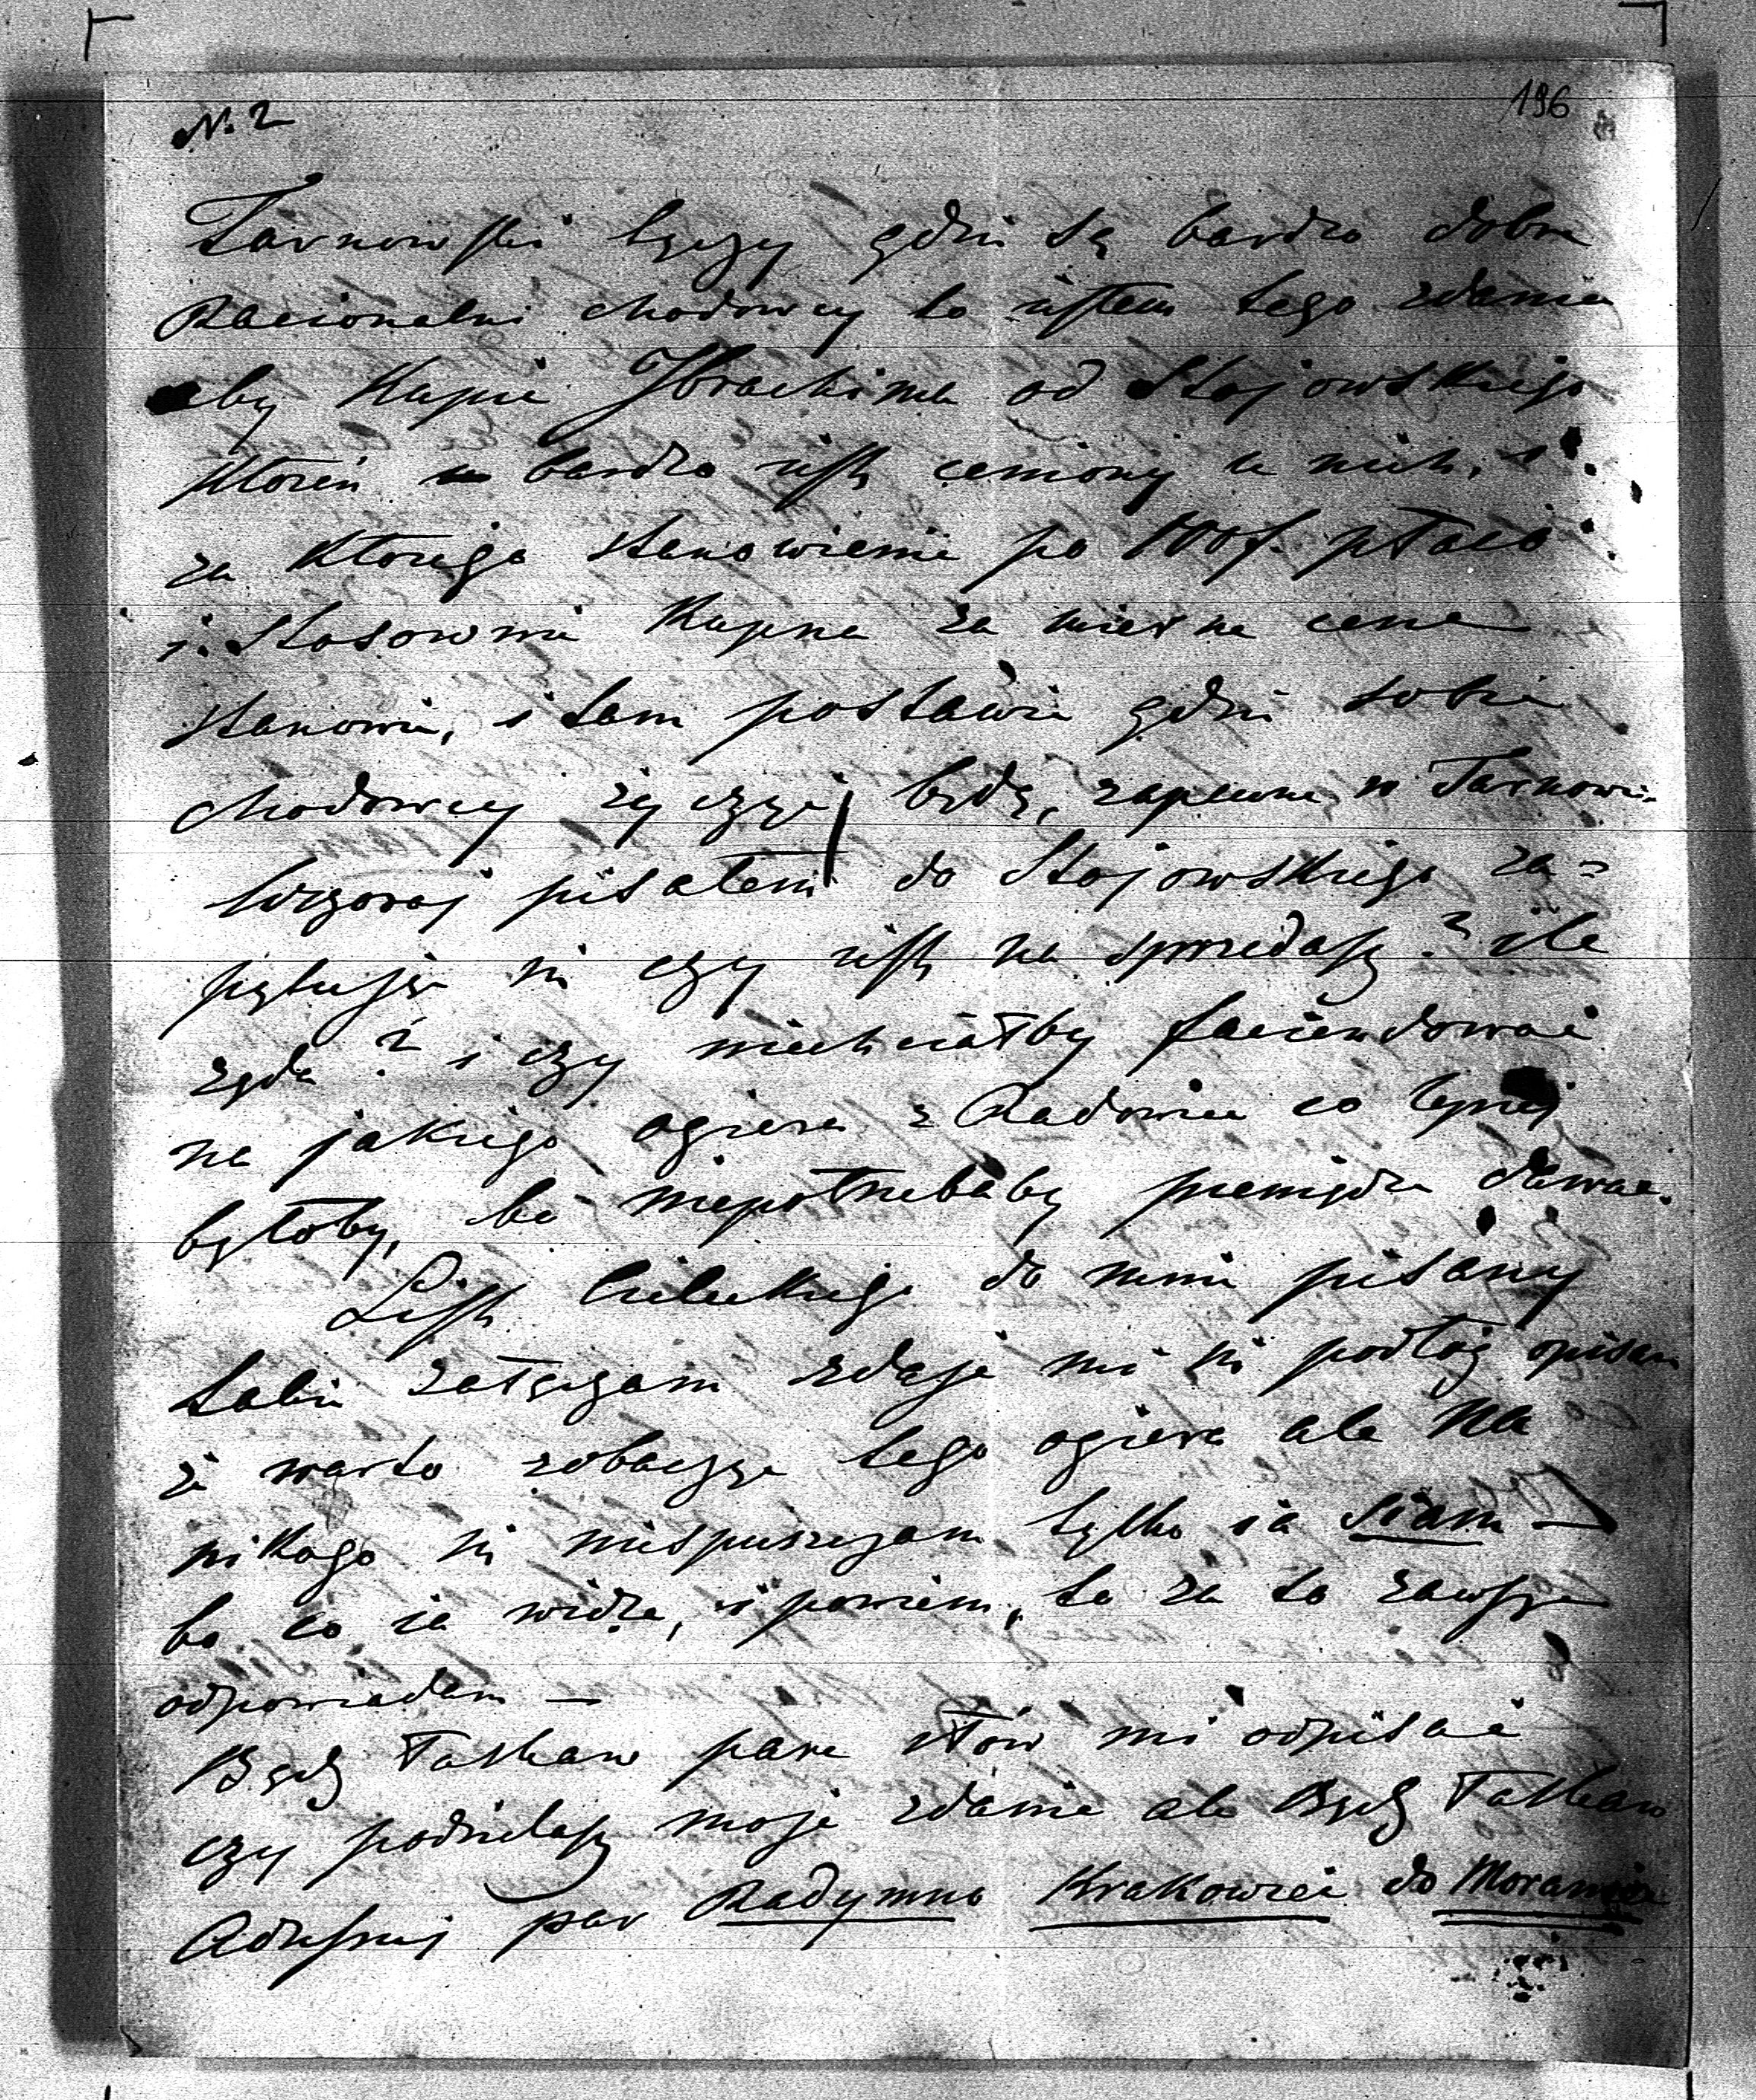 N. 2
196
Tarnowski łączy gdzie są bardzo dobre
Racionalni chodowcy to jestem tego zdania
aby Kupić Ibrachima od Stojowskiego
Któren bardzo jest ceniony u nich, i
za Którego stanowienie po 100 f. płaco
i stosownie Kupna za mierna cene
stanowić, i tam postawić gdzie sobie
chodowcy życzyć będą, zapewne w Tarnowie
Wczoraj pisałem do Stojowskiego za=
pytując się czy jest na sprzedasz? ile
ząda? i czy niechciałby faciendować
na jakiego ogiera z Radowiec co lepiej
byłoby, bo niepotrzebaby pieniędze dawać.
List do mnie pisany
Tobie załączam zdaje mi się podłóg opisan
że warto zobaczyć tego ogiera ale na
nikogo się niespuszczam tylko ia siam —
bo co ia widze, i powiem, to za to zawsze
odpowiadam —
Bądź łaskaw pare słów mi odpisać
czy podzielasz moje zdanie ale Bądź łaskaw
Adresuj par Radymno Krakowiec do